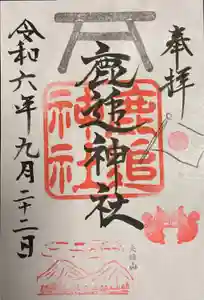 奉拝
鹿追神社
鹿追神社
令和六年九月二十二日